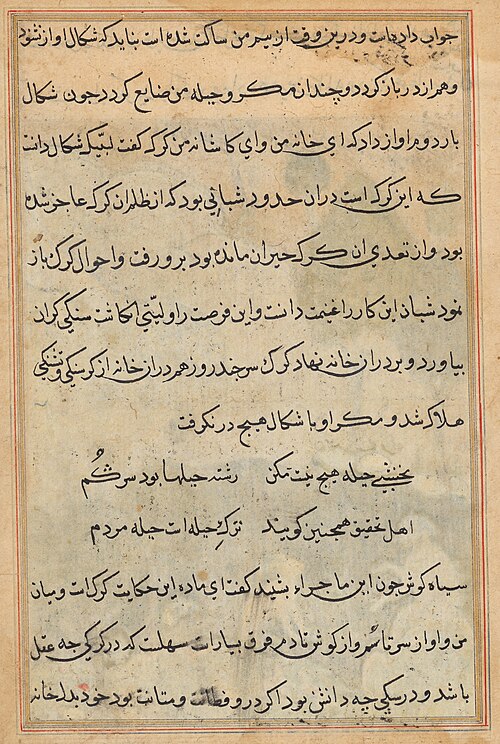 جواب دادهاست ودرین وقت از بیم من ساکت شده است بناید که شکال اواز نشود
وهم از در باز کردد و چندان مکر و حیله من ضایع کردد چون شکال
بار دوم اواز داد که ای خانه من وای کاشانه من کرک گفت لبیک شکال دانست
که این کرک است دران حدود شبانی بود که از ظلم ان کرک عاجز شده
بود واز تعدی ان کرک حیران مانده بود برو رفت واحوال کرک باز
نمود شبان این کار را غنیمت دانست واین فرصت را ولیتی انکاشت سنکی کران
بیاورد و بر در ان خانه نهاد کرک سر چند روز هم در ان خانه از کرسنکی وتشنکی
هلاک شد و مکر او با شکال هیچ در نکرفت
نخشبی حیله هیچ نیت مکن رشته حیلها بود سر کم
اهل تحقیق همچنین کویند ترک حیله است حیله مردم
سیاه کوش چون این ماجراء بشنید کفت ای ماده این حکایت کرک است ومیان
من واواز سر تا سُم واز کوش تا دم فرق بسیار است سهلست که در کرکی چه عقل
باشد و در سکی چه دانش بود اکر در و فطانت ومتانت بود خود بدر خانه